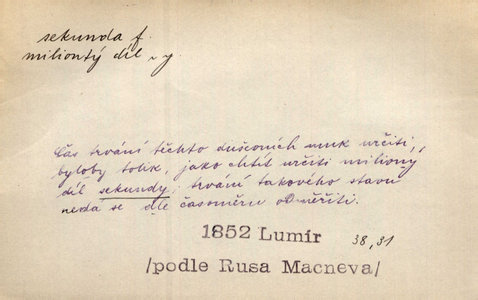 sekunda f.
miliontý díl ~y
Čas trvání těchto duševních muk určiti,
byloby tolik, jako chtít určiti miliony
díl sekundy; trvání takového stavu
nedá se dle časoměru odměřiti.
1852 Lumír 38,31
/podle Rusa Macneva/